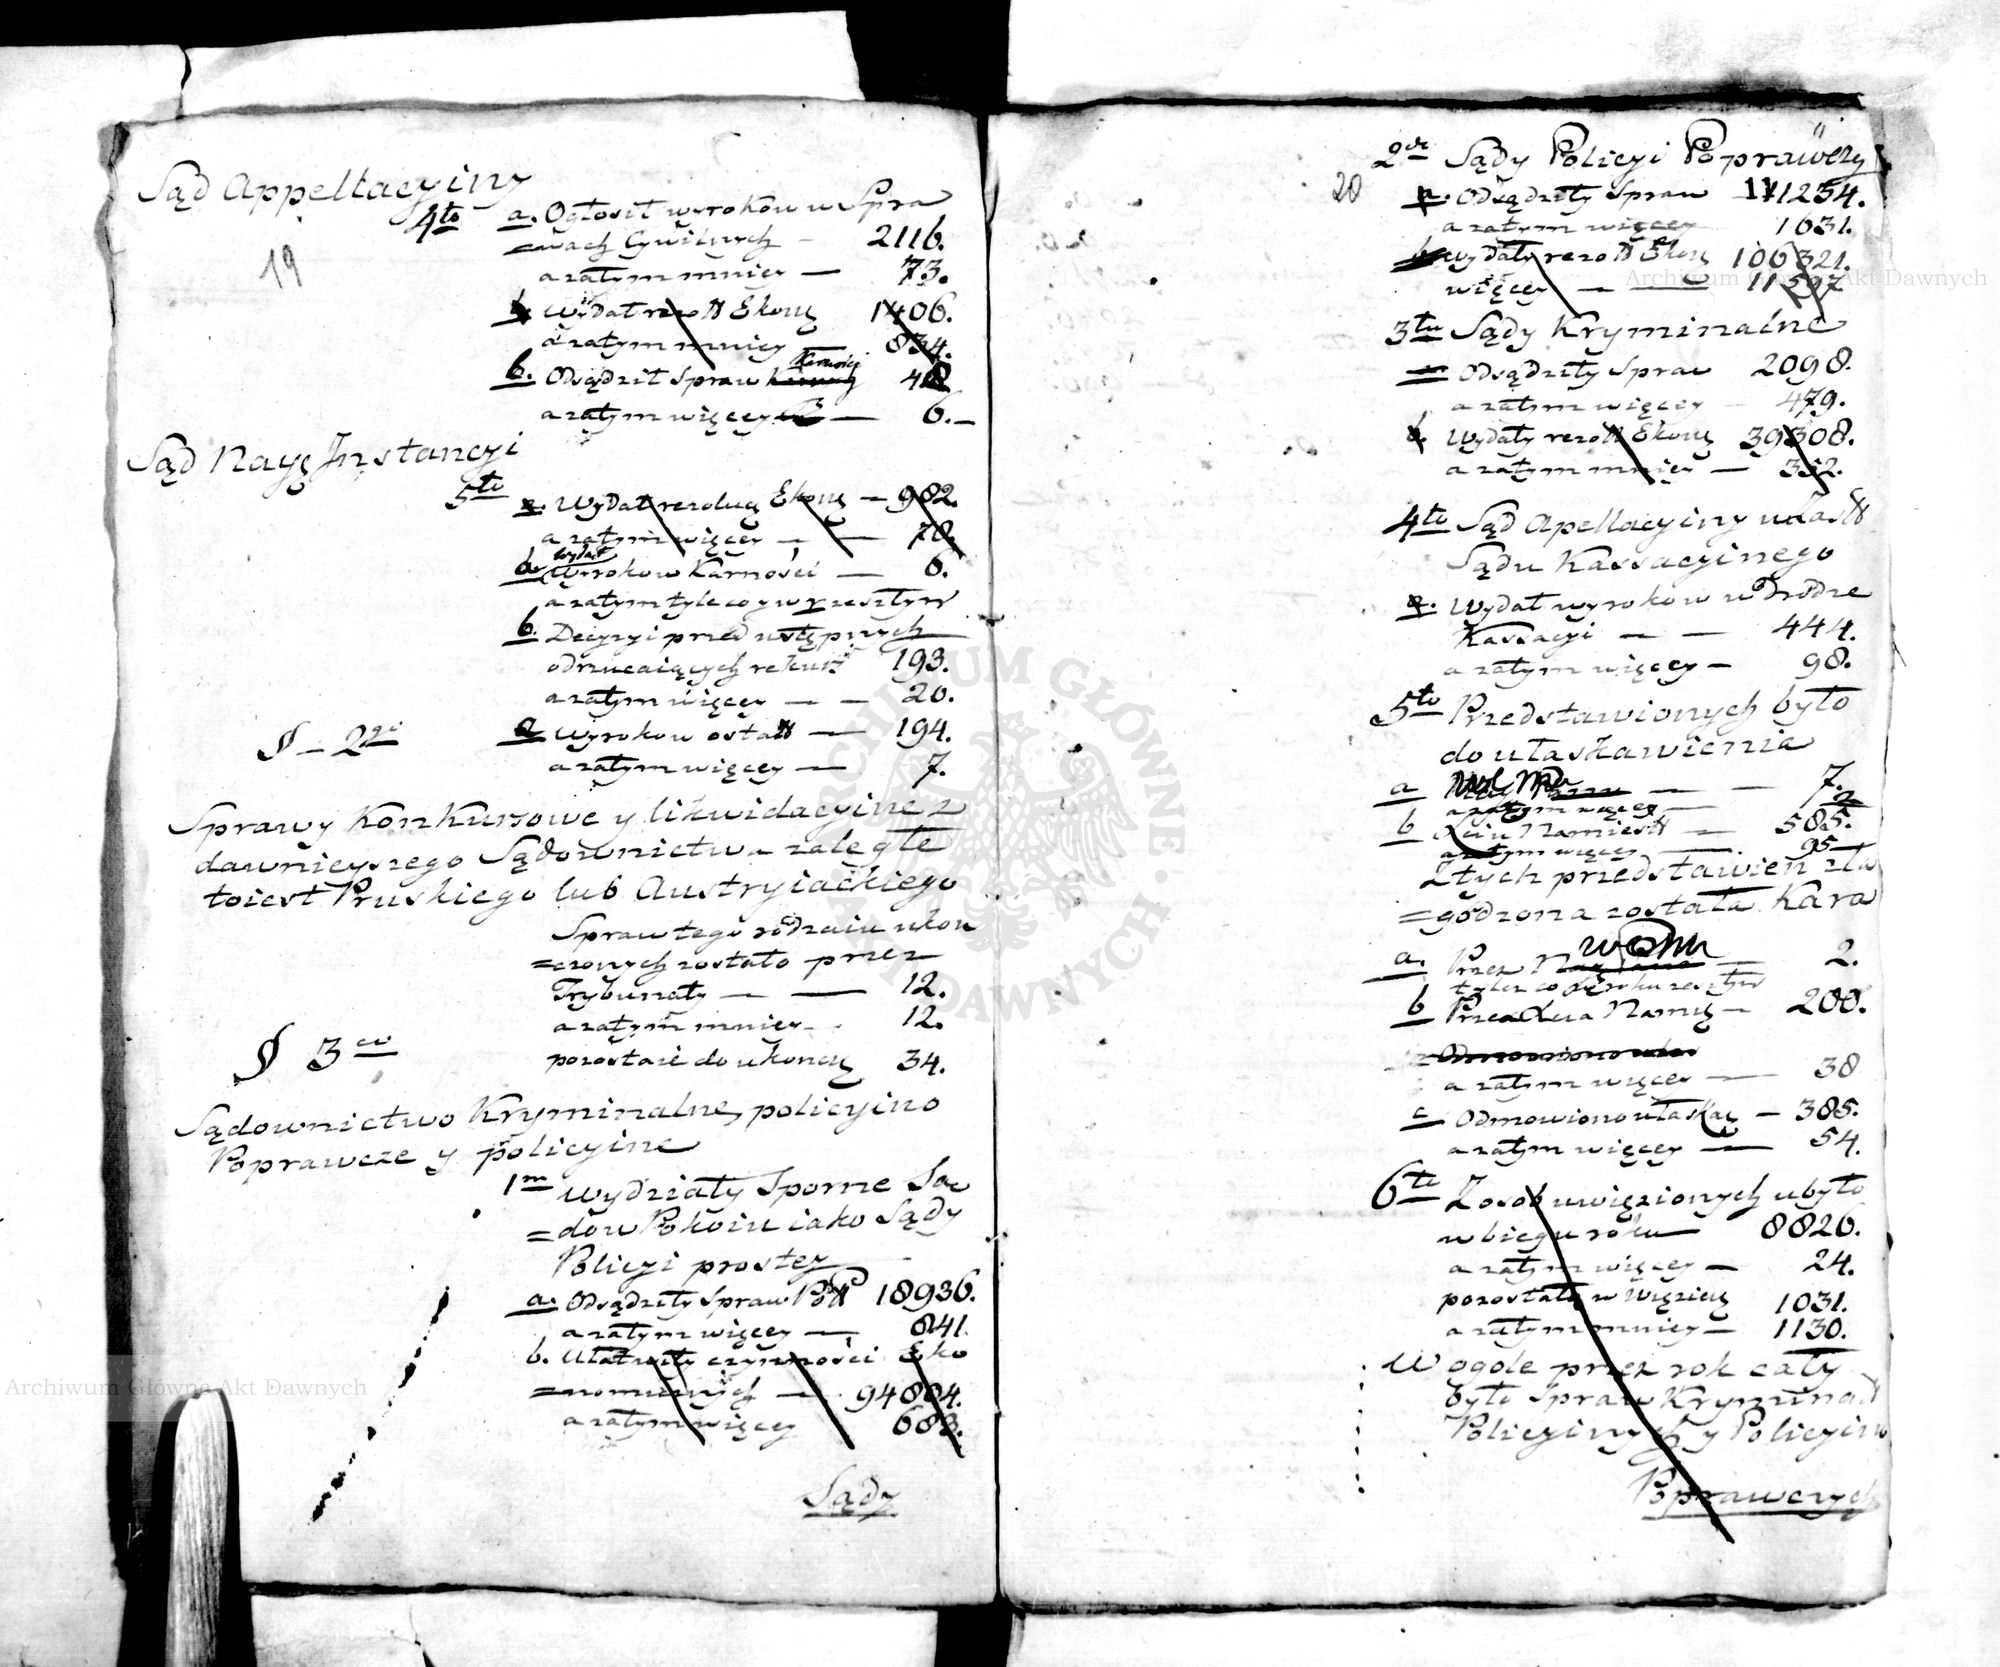 Sąd Appellacyiny
19
4to a. Ogłosił wyroków w Spra
=wach Cywilnych — 2116.
a zatym mniey — 73.
b. Wydał rezoll Ekonę 1406.
a zatym mniey 834.
Karności
b. Odsądził Spraw 418
a zatym więcey — 6.—
Sąd Nayę Instancyi
5to a. Wydał rezolucę Ekonę — 982.
a zatym więcey — — 78.
wydał
a. Wyroków Karności — 6.
a zatym tyle co y w przeszłym
b. Decyzyi przedwstępnych
odrzucaiących rekurs 193.
a zatym więcey — — 20.
a wyrokow ostatt — 194.
a zatym więcey — 7.
§ — 2gi
Sprawy Konkursowe y likwidacyine z
dawnieyszego Sądownictwa zaległe
toiest Pruskiego lub Austryiackiego
Spraw tego rodzaiu ukon
=czonych zostało przez
Trybunały — — 12.
a zatym mniey — . 12.
pozostaie do ukoncz 34.
§ 3ci
Sądownictwo Kryminalne, policyino
Poprawcze y policyine
1m Wydziały Sporne Są
=dów Pokoiu iako Sądy
Policyi prostey
a. Odsądziły Spraw Poll 18936.
a zatym więcey — 841.
b. Ułatwiły czynności Eko
=nomicznych — 94884.
a zatym więcey 683.
Sądy
2do Sądy Policyi Poprawczy
20
a. Odsądziły Spraw 11254.
a zatym więcey 1631.
b. Wydały rezoll Ekonę 106321.
więcey — —
3tio Sądy Kryminalne
Odsądziły Spraw 2098.
a zatym więcey 479.
b. Wydały rezoll Ekonę 39308.
a zatym mniey — 352.
4to Sąd Apellacyiny w
Sądu Kassacyinego
a. Wydał wyroków w Drodze
Kassacyi — — 444.
a zatym więcey — 98.
5to Przedstawionych było
do ułaskawienia
a — — 7.
a zatym więcey — 2
b Xciu Namiestt — 585.
a zatym więcey — 95
Z tych przedstawień zła
=godzona została Kara
a. Przez — 2.
tyleż co w roku zeszłym
b Przez Xcia Namię — 200.
a zatym więcey — 38
c Odmowiono ułaskaę — 385.
a zatym więcey — 54.
6to Z osob uwięzionych ubyło
w biegu roku — 8826.
a zatym więcey — 24.
pozostało w Więzieę 1031.
a zatym mniey — 1130.
W ogóle przez rok cały
było Spraw Kryminall
Policyinych y Policyino
Poprawczych
Archiwum Główne Akt Dawnych
Archiwum Główne Akt Dawnych
ARCHIWUM GŁÓWNE
AKT DAWNYCH